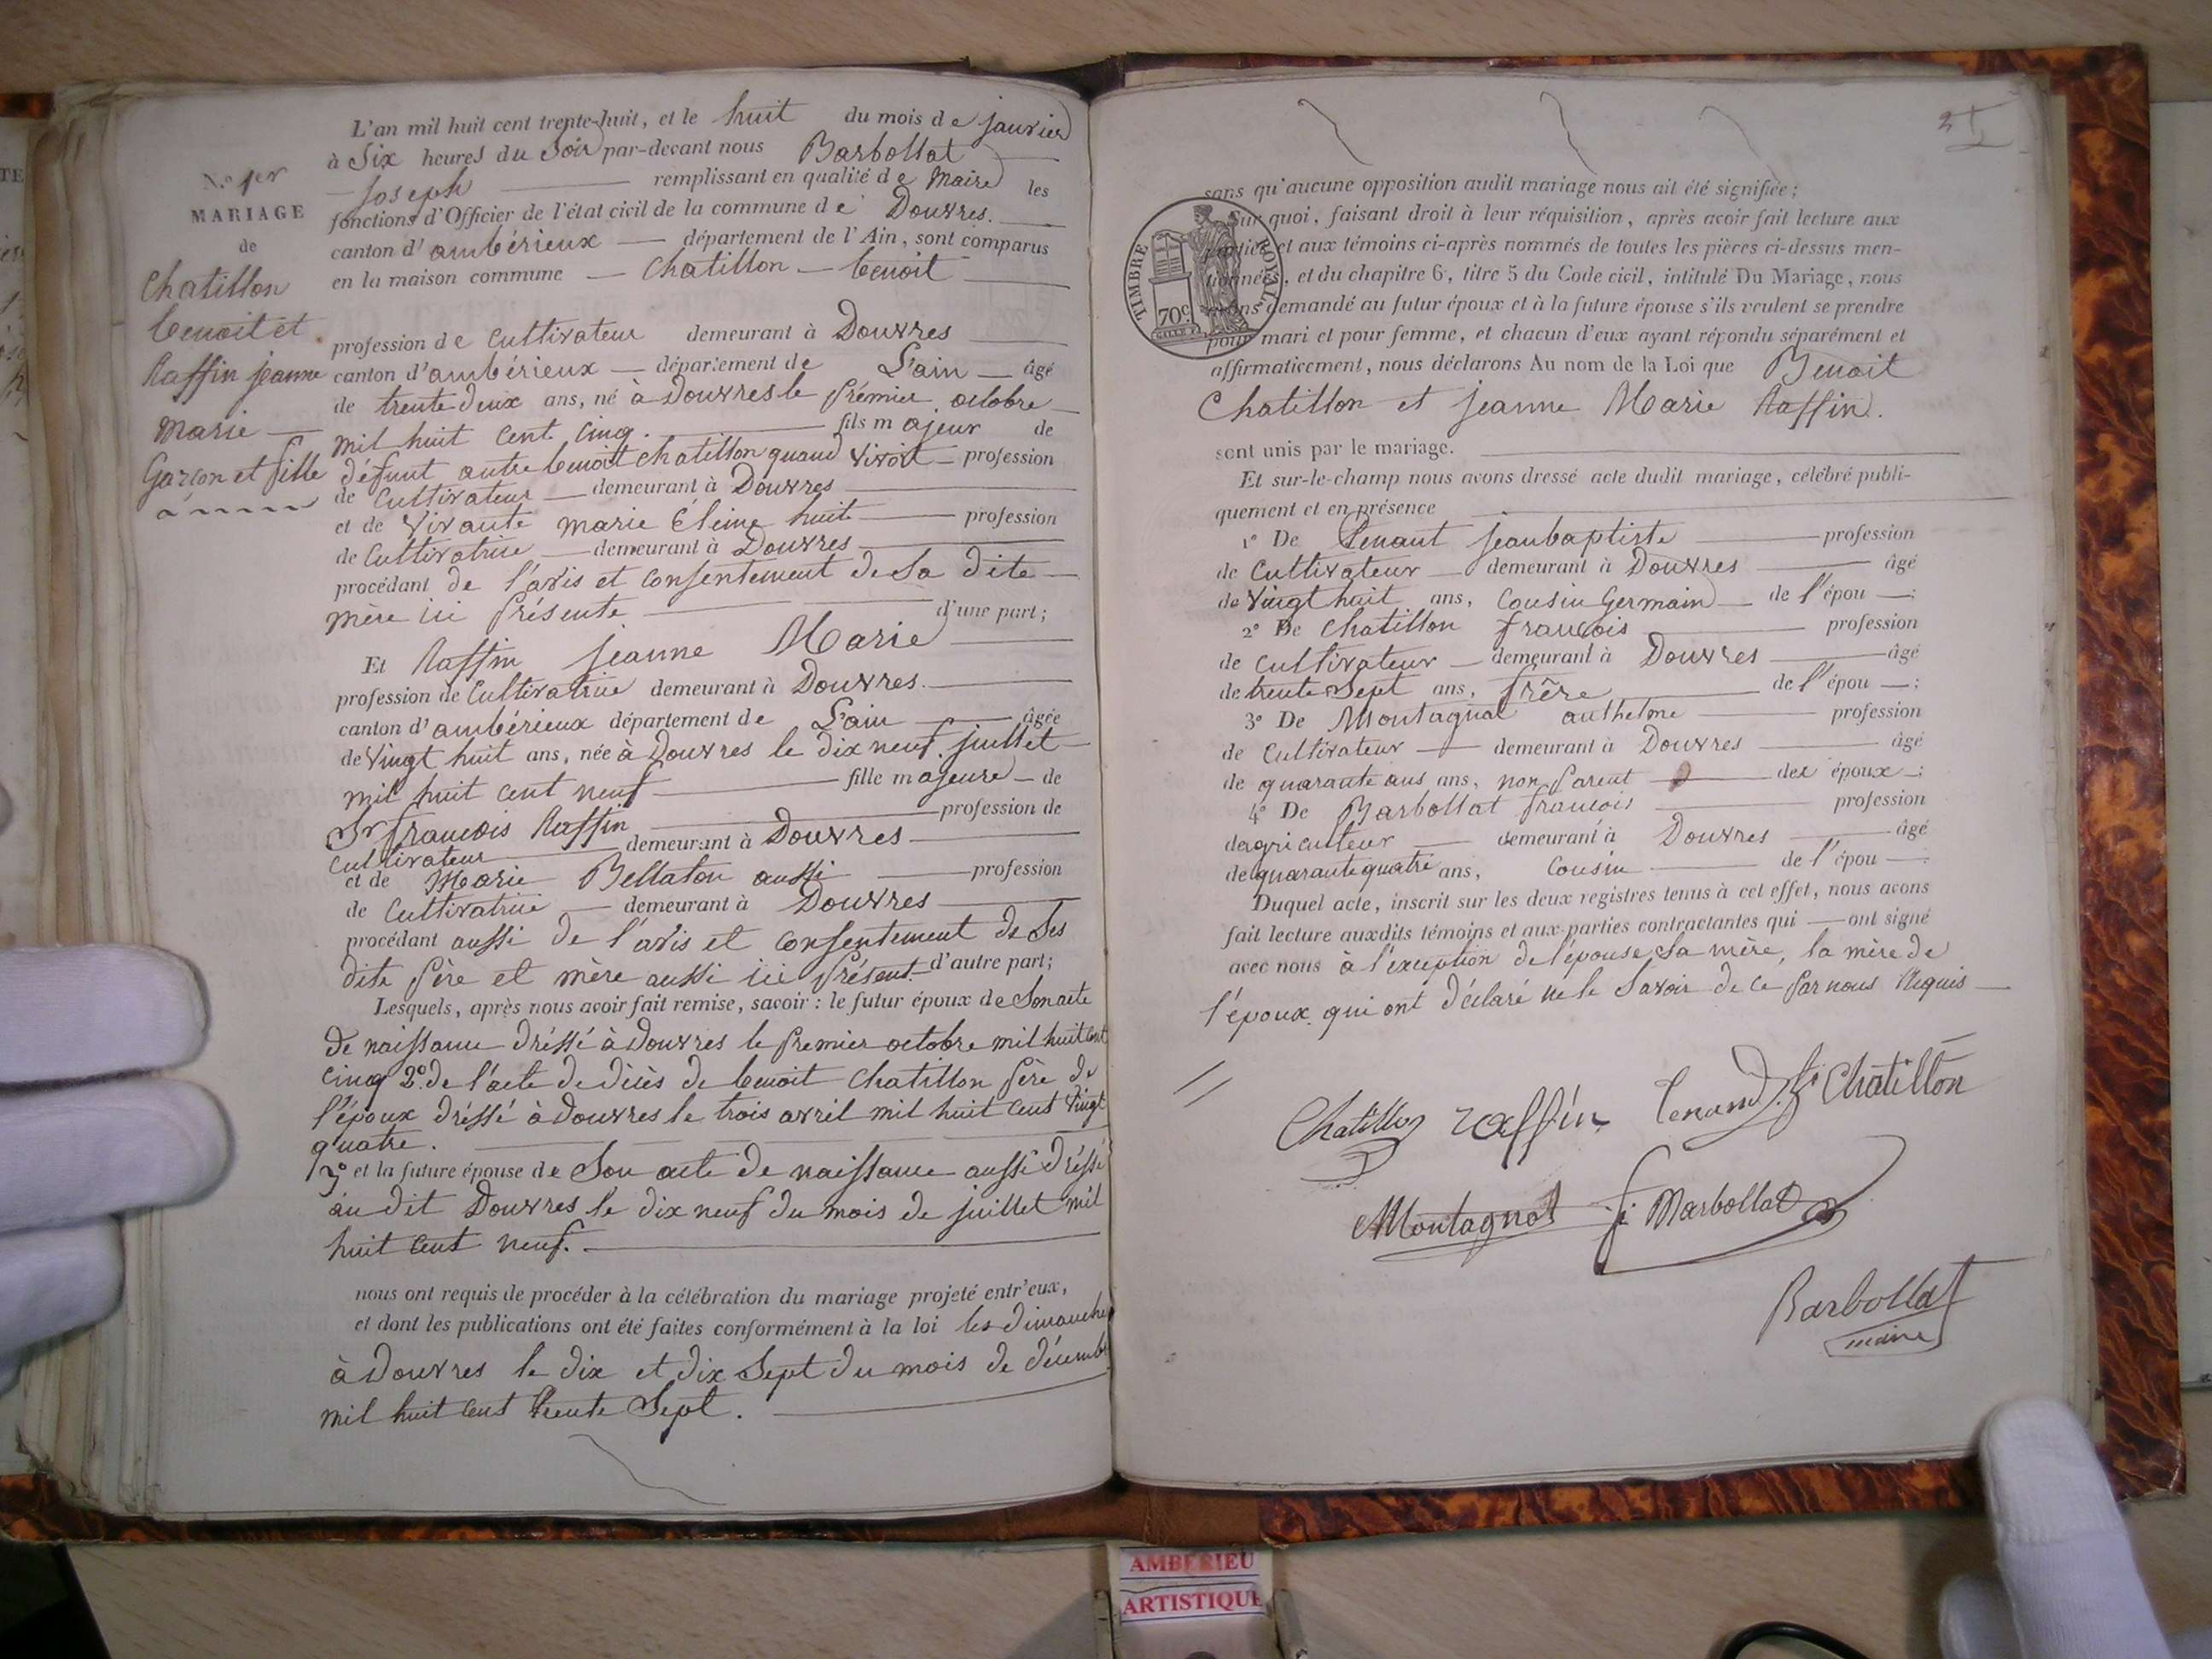 L'an mil huit cent trente-huit, et le huit du mois de janvier
à Six heures du Soir par-devant nous Barbollat
Joseph remplissant en qualité de Maire les
fonctions d'Officier de l'état civil de la commune de Douvres.
canton d'ambérieux département de l'Ain, sont comparus
en la maison commune Chatillon benoit
N.o 1er
MARIAGE
de
Chatillon
benoit et
Raffin jeanne
marie
Garcon et fille
profession de Cultivateur demeurant à Douvres
canton d'ambérieux département de L'ain âgé
de trente deux ans, né à Douvres le prémier octobre
mil huit cent cinq. fils majeur de
défunt autre benoit chatillon quand vivoit profession
de Cultivateur demeurant à Douvres
et de Vivante marie huit profession
de Cultivatrice demeurant à Douvres
procédant de l'avis et consentement de Sa dite
mère ici présente d'une part;
Et Raffin jeanne Marie
profession de Cultivatrice demeurant à Douvres.
canton d'ambérieux département de L'ain âgée
de vingt huit ans, née à Douvres le dix neuf juillet
mil huit cent neuf fille majeure de
Sr francois Raffin profession de
Cultivateur demeurant à Douvres
et de Marie Bellaton aussi profession
de Cultivatrice demeurant à Douvres
procédant aussi de l'avis et consentement de Ses
dits père et mère aussi ici présent d'autre part;
Lesquels, après nous avoir fait remise, savoir: le futur époux de Son acte
de naissance dréssé à Douvres le premier octobre mil huit cent
cinq 2o. de l'acte de décès de benoit Chatillon père de
l'époux dréssé à Douvres le trois avril mil huit cent vingt
quatre.
3o et la future épouse de Son acte de naissance aussi dréssé
au dit Douvres le dix neuf du mois de juillet mil
huit cent neuf.
nous ont requis de procéder à la célébration du mariage projeté entr'eux,
et dont les publications ont été faites conformément à la loi les dimanches
à Douvres le dix et dix Sept du mois de décembre
mil huit cent trente Sept.
sans qu'aucune opposition audit mariage nous ait été signifiée;
Sur quoi, faisant droit à leur réquisition, après avoir fait lecture aux
parties et aux témoins ci-après nommés de toutes les pièces ci-dessus men-
tionnées, et du chapitre 6, titre 5 du Code civil, intitulé Du Mariage, nous
avons demandé au futur époux et à la future épouse s'ils veulent se prendre
pour mari et pour femme, et chacun d'eux ayant répondu séparément et
affirmativement, nous déclarons Au nom de la Loi que Benoit
Chatillon et jeanne Marie Raffin.
TIMBRE ROYAL
70 c
sont unis par le mariage.
Et sur-le-champ nous avons dressé acte dudit mariage, célébré publi-
quement et en présence
1o De Tenant jeanbaptiste profession
de Cultivateur demeurant à Douvres âgé
de Vingt huit ans, Cousin Germain de l'épou ;
2o De Chatillon francois profession
de cultivateur demeurant à Douvres âgé
de trente Sept ans, frère de l'épou ;
3o De Montagnat anthelme profession
de Cultivateur demeurant à Douvres âgé
de quarante ans ans, non parent des époux ;
4o De Barbollat francois profession
de agriculteur demeurant à Douvres âgé
de quarante quatre ans, Cousin de l'épou
Duquel acte, inscrit sur les deux registres tenus à cet effet, nous avons
fait lecture auxdits témoins et aux parties contractantes qui ont signé
avec nous à l'exception de l'épouse, sa mère, la mère de
l'époux qui ont déclaré ne le Savoir de ce par nous Requis
Chatillon raffin Tenand fs Chatillon
Montagnat f Barbollat
Barbollat
maire
AMBERIEU
ARTISTIQUE